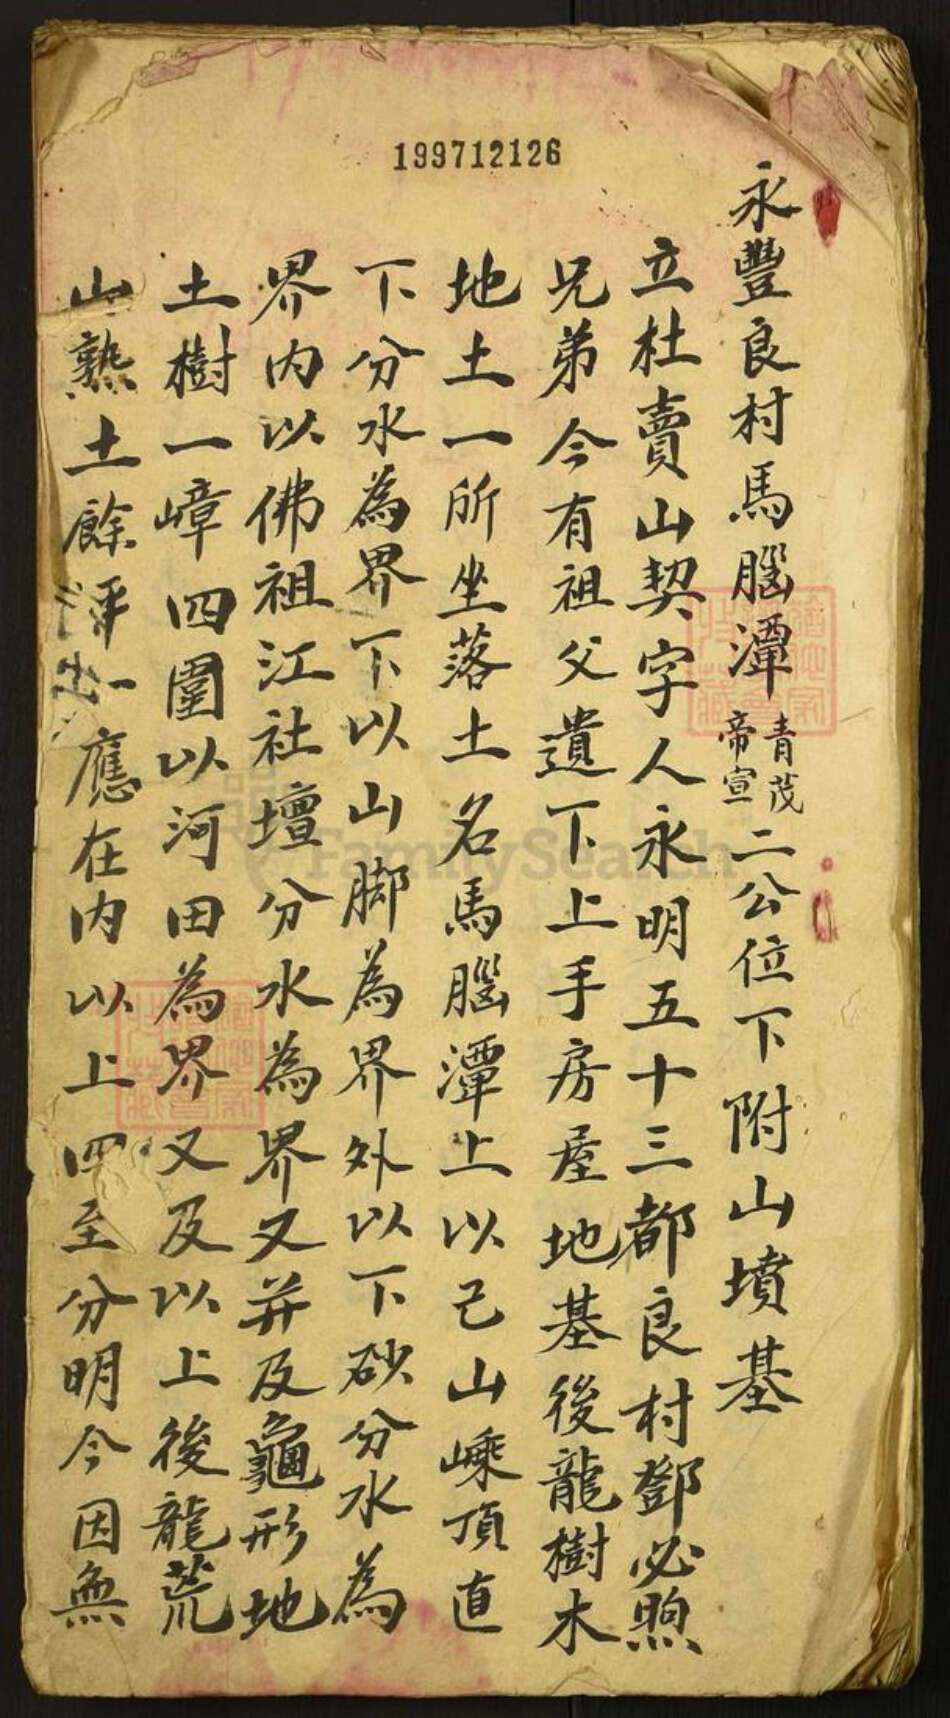 199712126
永豐良村馬腦潭青茂帝宣二公位下附山墳基
立杜賣山契字人永明五十三都良村鄧必煦
兄弟今有祖父遺下上手房屋地基後龍樹木
地土一所坐落土名馬腦潭上以己山嵊頂直
下分水為界下以山脚為界外以下砂分水為
界內以佛祖江社壇分水為界又并及龜形地
土樹一嶂四圍以河田為界又及以上後龍荒
山熟土餘坪一應在內以上四至分明今因無
FamilySearch